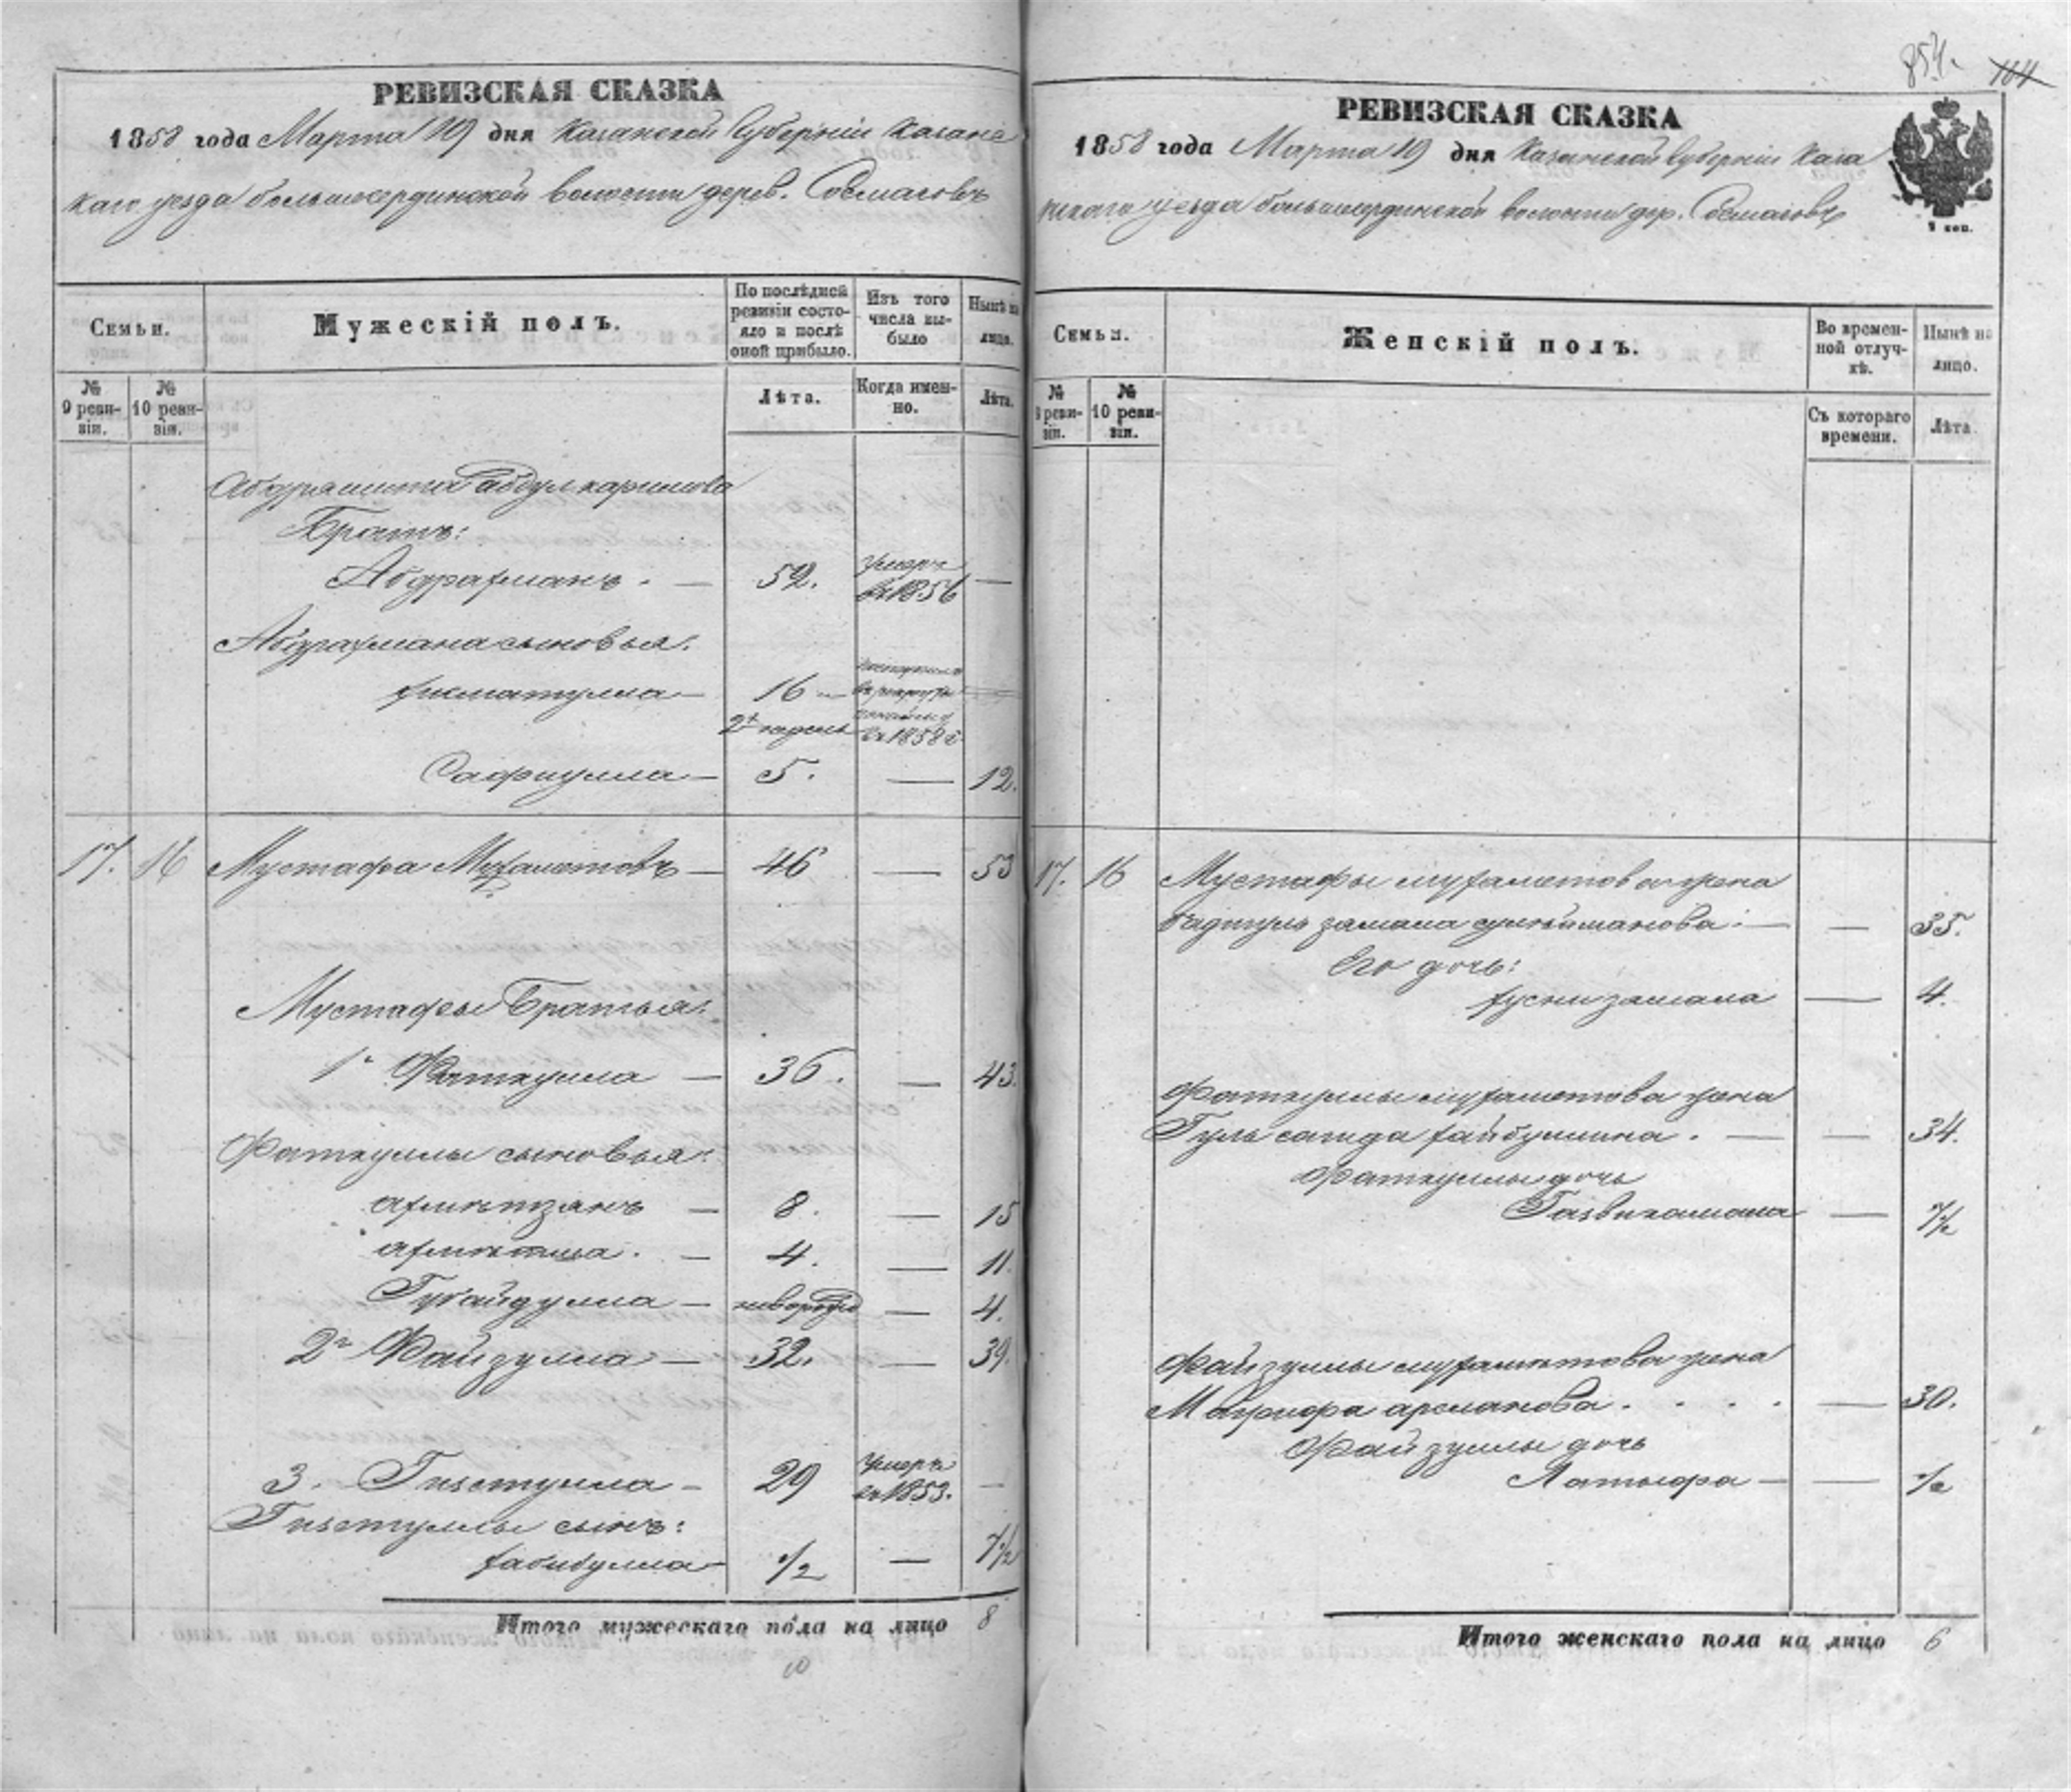 РЕВИЗСКАЯ СКАЗКА
1858 года Марта 19 дня Казанской Губерніи Казанс
каго уезда большесердинской волости дерев.
Семьи.
Мужескій полъ.
По послѣдней ревизіи состояло и послѣ оной прибыло.
Изъ того числа выбыло
Нынѣ на лицо.
№ 9 ревизіи.
№ 10 ревизіи.
Лѣта.
Когда именно.
Лѣта.
Абдряшита абдулкаримова
Братъ:
Абдрахманъ. — 52. умеръ въ 1856 —
Абдрахмана сыновья:
хисматулла — 16 —
2 в 1858 г.
Сафиулла — 5. — 12.
17. 16 Мустафа Мухаметовъ — 46 — 53
Мустафы Братья:
1й Фаткулла — 36. — 43.
Фаткуллы сыновья:
ахметзянъ — 8. — 15
ахметша. — 4. — 11.
Губайдулла — новорожд — 4.
2й Файзулла — 32. — 39.
3. Гизетулла — 29 умеръ въ 1853. —
Гизетуллы сынъ:
хабибулла — 1/2 — 7 1/2
Итого мужескаго пола на лицо 8
10
854.
104
РЕВИЗСКАЯ СКАЗКА
1858 года Марта 19 дня Казанской Губерніи Каза
нскаго уезда большесердинской волости дер.
1 коп.
Семьи.
Женскій полъ.
Во временной отлучкѣ.
Нынѣ на лицо.
№ 9 ревизіи.
№ 10 ревизіи.
Съ котораго времени.
Лѣта.
17. 16 Мустафы мухаметова жена
бадигуль замала сулейманова: — — 35.
Его дочь:
хуснизамала — 4.
Фаткуллы мухаметова жена
Гуль сагида хайбуллина. — — 34.
Фаткуллы дочь
— 7/2
Файзуллы мухаметова жена
Магфифа арсланова. . . . — 30.
Файзуллы дочь
Латыфа — — 1/2
Итого женскаго пола на лицо 6